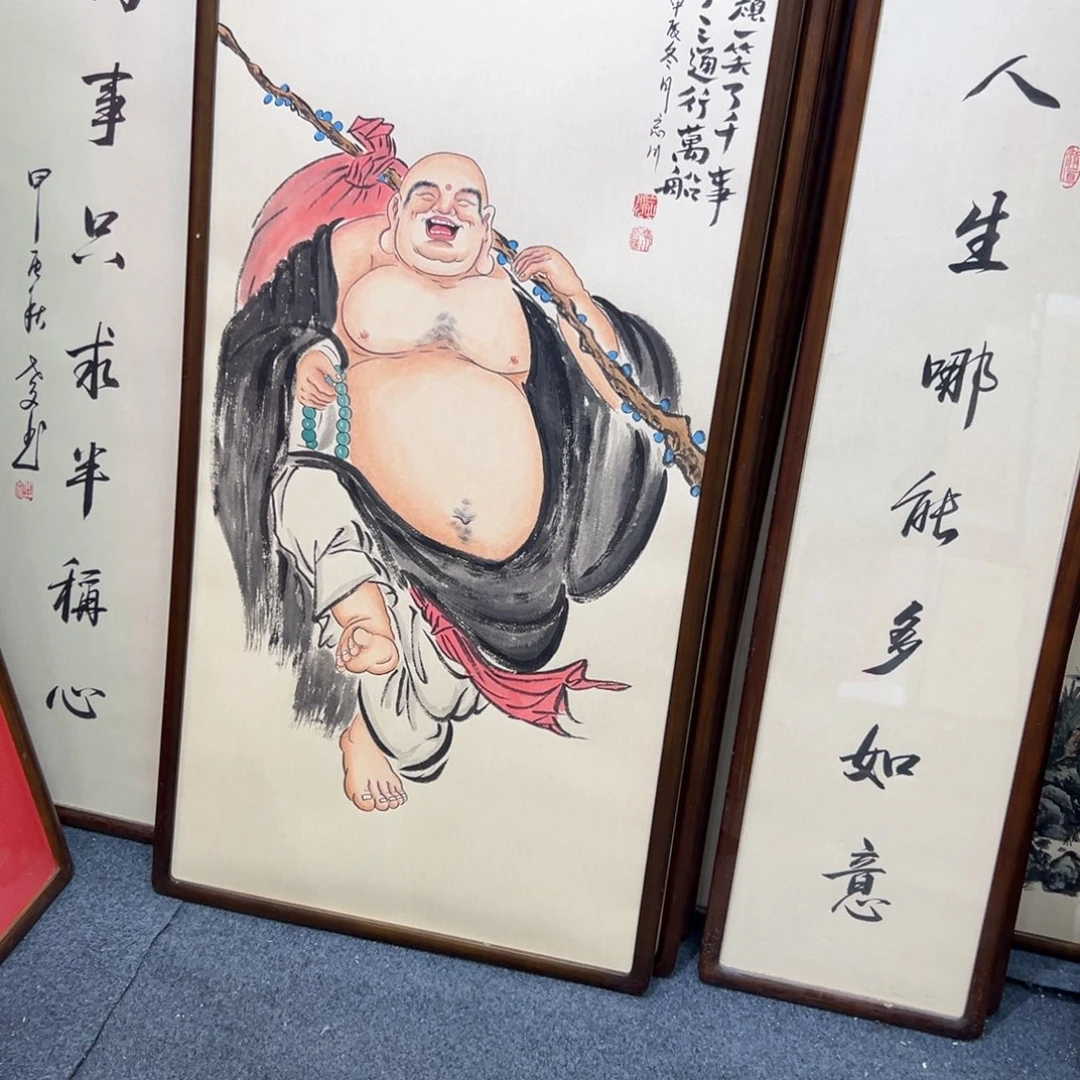 人生哪能多如意
一笑了千事
通行萬船
甲辰冬月
事只求半稱心
甲辰秋